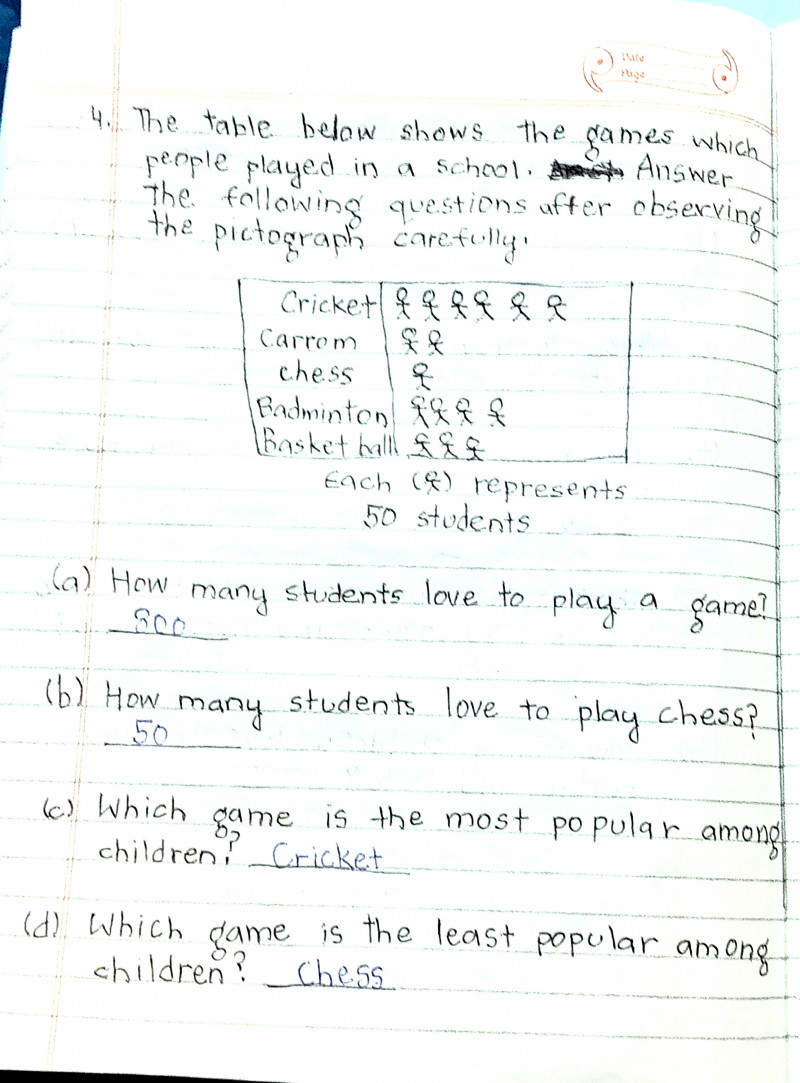 Date
Page
4. The table below shows the games which
people played in a school. Answer
The following questions after observing
the pictograph carefully.
Cricket
Carrom
chess
Badminton
Basket ball
Each (웃) represents
50 students
(a) How many students love to play a game?
800
(b) How many students love to play chess?
50
(c) Which game is the most popular among
children? Cricket
(d) Which game is the least popular among
children? Chess